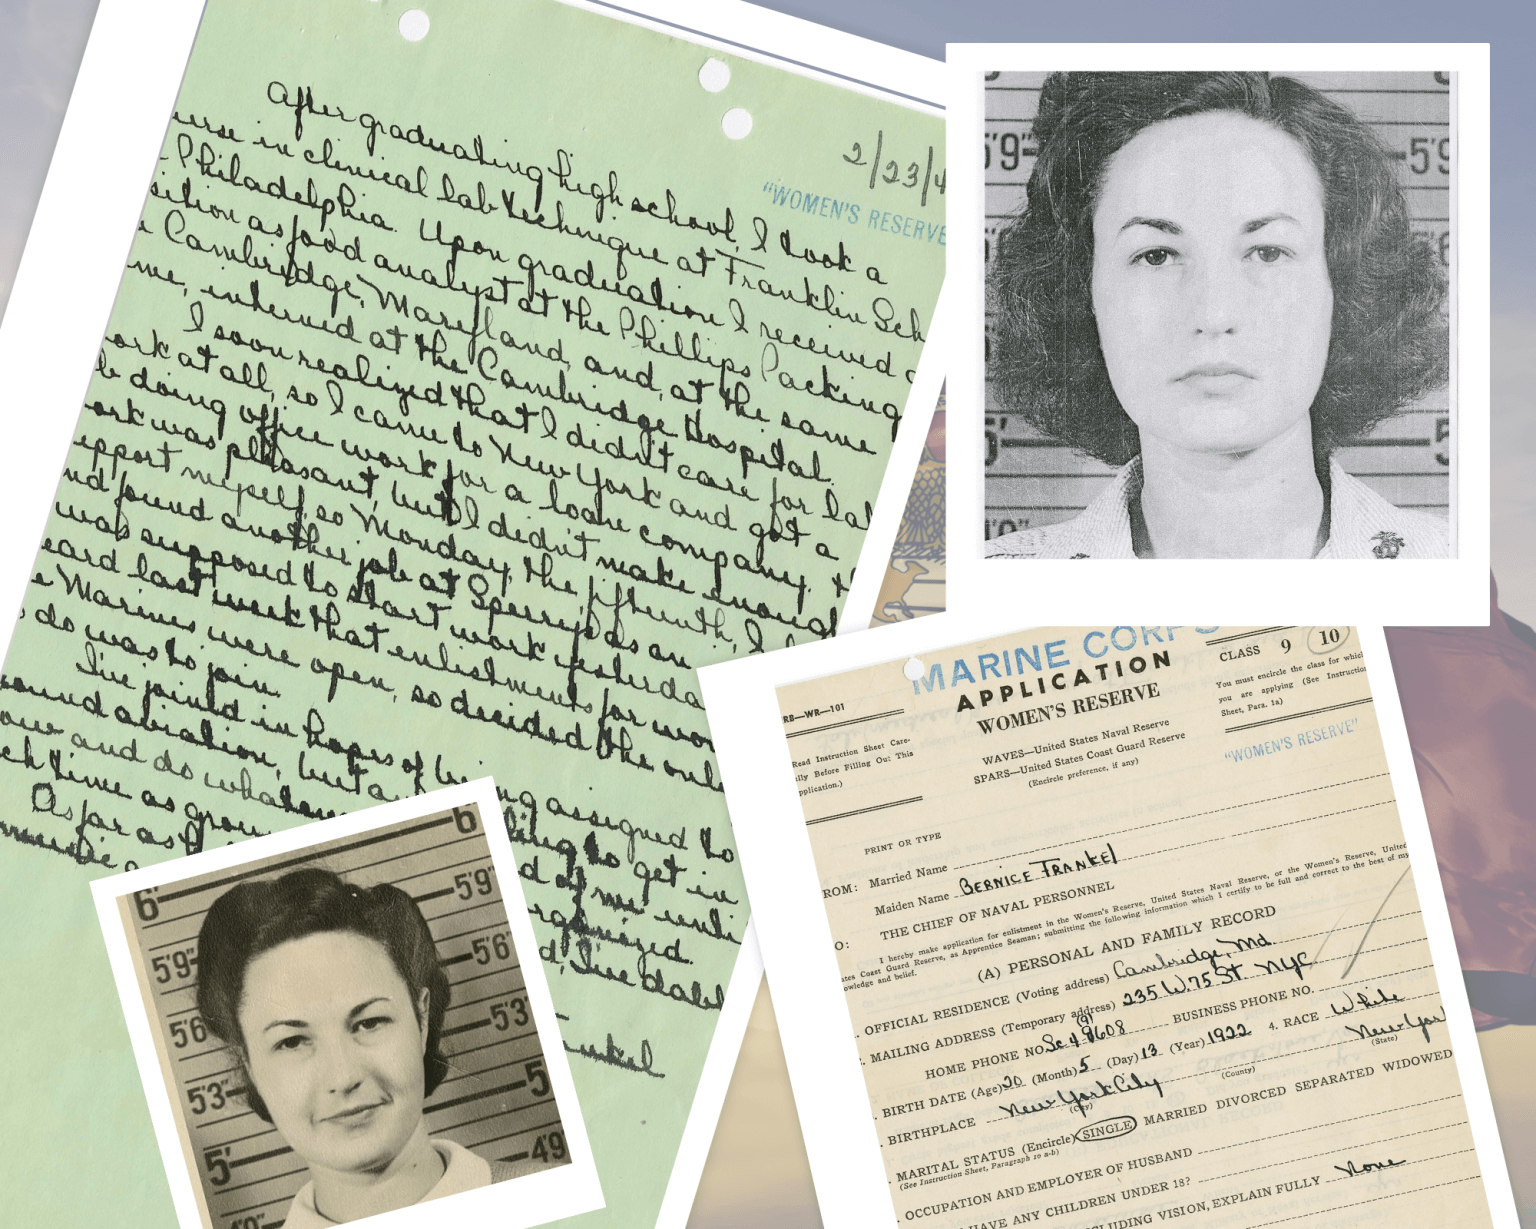 2/23/4
"WOMEN'S RESERVE
After graduating high school, I took a
urse in clinical lab technique at Franklin Sch
Philadelphia. Upon graduation I received a
sition as food analyst at the Phillips Packing
Cambridge, Maryland, and, at the same
me, interned at the Cambridge Hospital.
I soon realized that I didn't care for lab
ork at all, so I came to New York and got a
b doing office work for a loan company. th
ork was pleasant, but I didn't make enough
upport myself, so Monday, the fifteenth, I
nd found another job at Sperry's as an
was supposed to start work yesterda
eard last week that enlistments for wom
e Marines were open, so decided the only
do was to join.
I've joined in hopes of being assigned to
ound aviation, but a ling to get in
now and do whatever d of me unti
ch time as grou rganized.
As far as d, I've dabbl
music a
Frankel
5'9" 5'9
5' 5
6' 6
5'9" 5'9"
5'6 5'6"
5'3" 5'3
5' 5
4'9
MARINE CORPS
APPLICATION
WOMEN'S RESERVE
WAVES—United States Naval Reserve
SPARS—United States Coast Guard Reserve
(Encircle preference, if any)
CLASS 9 10
You must encircle the class for which
you are applying (See Instruction
Sheet, Para. 1a)
"WOMEN'S RESERVE"
RB—WR—101
Read Instruction Sheet Care-
lly Before Filling Out This
pplication.)
PRINT OR TYPE
ROM: Married Name
Maiden Name BERNICE FRANKEL
O: THE CHIEF OF NAVAL PERSONNEL
I hereby make application for enlistment in the Women's Reserve, United States Naval Reserve, or the Women's Reserve, United
tes Coast Guard Reserve, as Apprentice Seaman; submitting the following information which I certify to be full and correct to the best of my
owledge and belief.
(A) PERSONAL AND FAMILY RECORD
. OFFICIAL RESIDENCE (Voting address) Cambridge, Md.
. MAILING ADDRESS (Temporary address) 235 W. 75 St NYC
HOME PHONE NO. Sc 4 9608 (9) BUSINESS PHONE NO.
. BIRTH DATE (Age) 20 (Month) 5 (Day) 13 (Year) 1922 4. RACE White
. BIRTHPLACE New York City New Yor
(City) (County) (State)
. MARITAL STATUS (Encircle) SINGLE MARRIED DIVORCED SEPARATED WIDOWED
(See Instruction Sheet, Paragraph 10 a-b)
. OCCUPATION AND EMPLOYER OF HUSBAND
HAVE ANY CHILDREN UNDER 18?
CLUDING VISION, EXPLAIN FULLY None